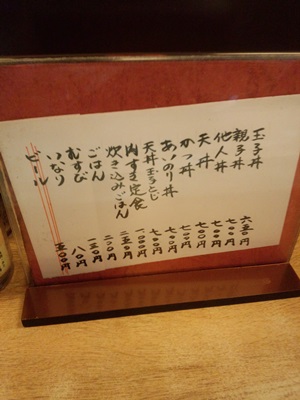 玉子丼 六五〇円
親子丼 七〇〇円
他人丼 七〇〇円
天丼 七〇〇円
かつ丼 七〇〇円
あいのり丼 七〇〇円
天丼玉子とじ 七〇〇円
肉すき定食 一,〇〇〇円
炊き込みごはん 二五〇円
ごはん 二〇〇円
むすび 一五〇円
いなり 八〇円
ビール 五〇〇円